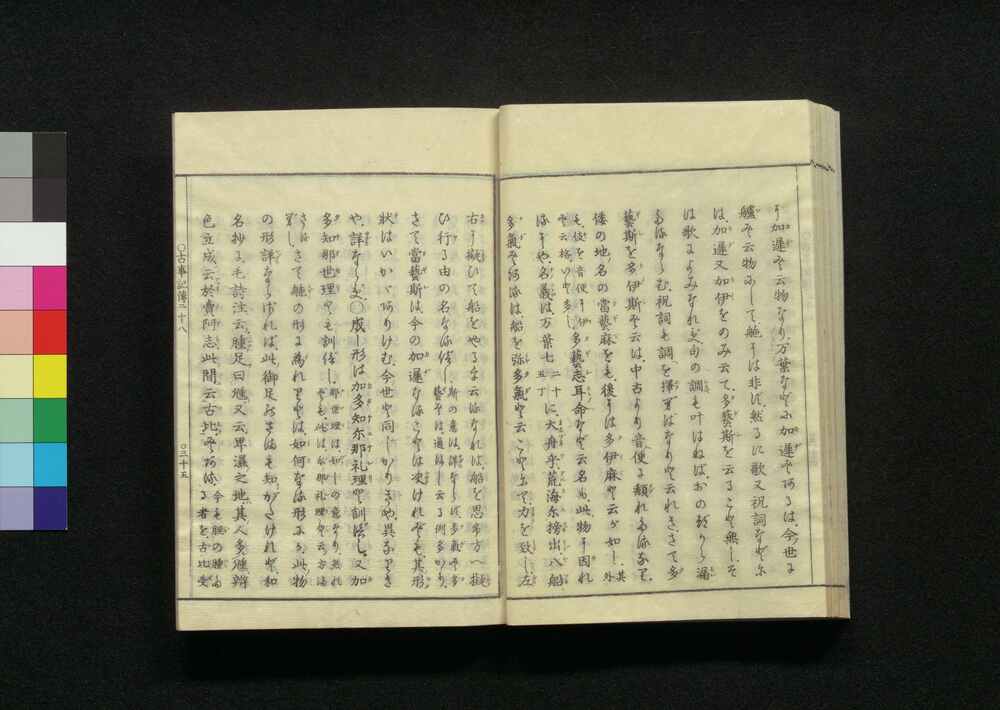 り加遲と云物なり、万葉などに加遲とあるは、今世に
艫と云物にして、舵には非ず、然るに歌又祝詞などに
は加遲又加伊をのみ云て、多藝斯を云ること無し、そ
は歌によみなれず、句の調も叶はねば、おのづから漏
たるならむ、祝詞も調を擇ばなりと云れき、さて多
藝斯を多伊斯と云は、中古より音便に頽れたるなり、
倭の地名の當藝麻をも、後には多伊麻と云が如し、其外
も、伎を音便に伊
多藝志耳命など云名も、此物に因れ
と云格いと多し、
るにや、名義は万葉七二十五丁に、大舟乎、荒海尓榜出、八船
多氣とあるは、船を弥多氣と云ことにて、力を致し、左
右に擬ひて、船をやるを云るなれば、船を思ふ方へ擬
ひ行る由の名なるべし、
さて當藝斯は、今の加遲なることは決けれども、其形
状はいかゞありけむ、今世と同じかりきや、異なりき
や、詳ならず、〇成形は加多知尓那礼理と訓べし、又加
多知那世理とも訓べし、那世理は、如しの意なり、
さて舵の形に為れりとは、如何なる形にか、此物
の形詳ならざれば、此御足のさまも知がたけれど、和
名抄に、毛詩注云、腫足曰尰、又云、卑濕之地、其人多尰、辨
色立成云、於賣阿志、此間云古比とある、今も腿の腫る者を、古比受
〇古事記傳二十八
〇三十五